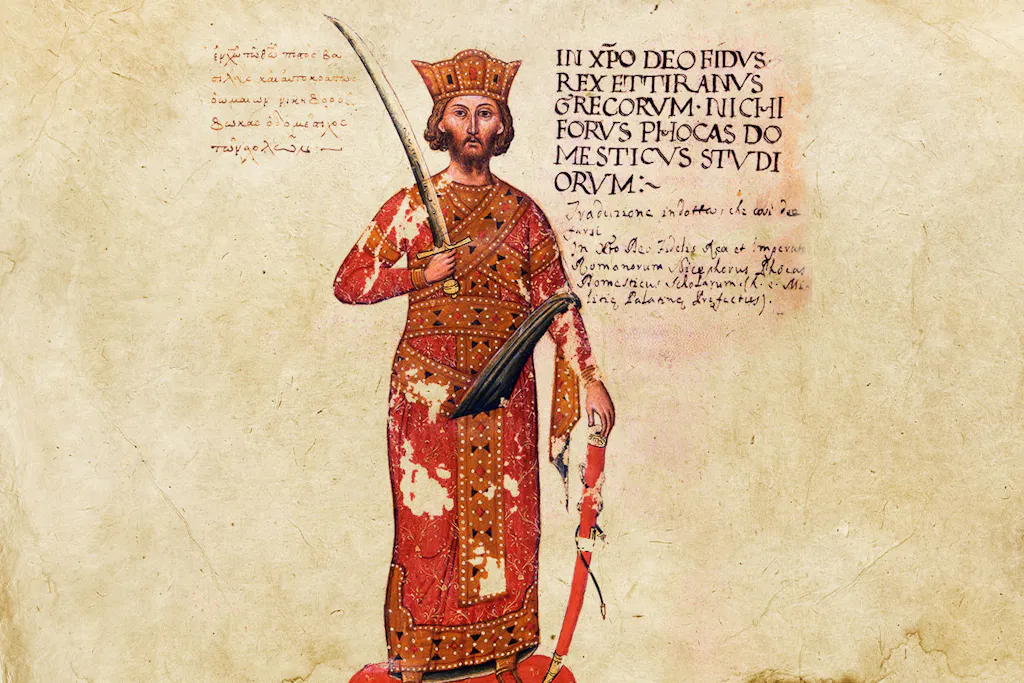 ἐν χῶ τῶ θῶ πιστὸς βα
σιλεὺς καὶ αὐτοκράτωρ
ῥωμαίων νικηφόρος
φωκᾶς ὁ δομέστιχος
τῶν σχολῶν :~
IN XP̄O DEO FIDVS·
REX ET TIRANVS
GRECORVM· NICHI
FORVS PHOCAS DO
MESTICVS STVDI
ORVM:~
Traduzione indotta, che così dee
farsi
In Xp̄o Deo Fidelis Rex et Imperat
Romanorum Nicephorus Phocas
Domesticus Scholarum (h. e. Mi-
litiæ Palatinæ Præfectus).